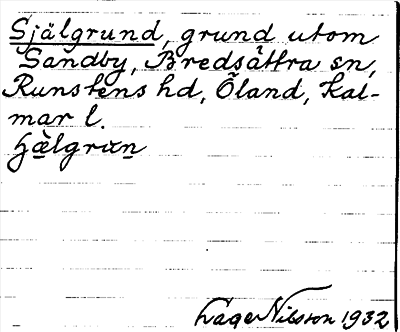 Själgrund, grund utom
Sandby, Bredsättra sn,
Runstens hd, Öland, Kal-
mar l.
hälgran
Lage Nilsson 1932